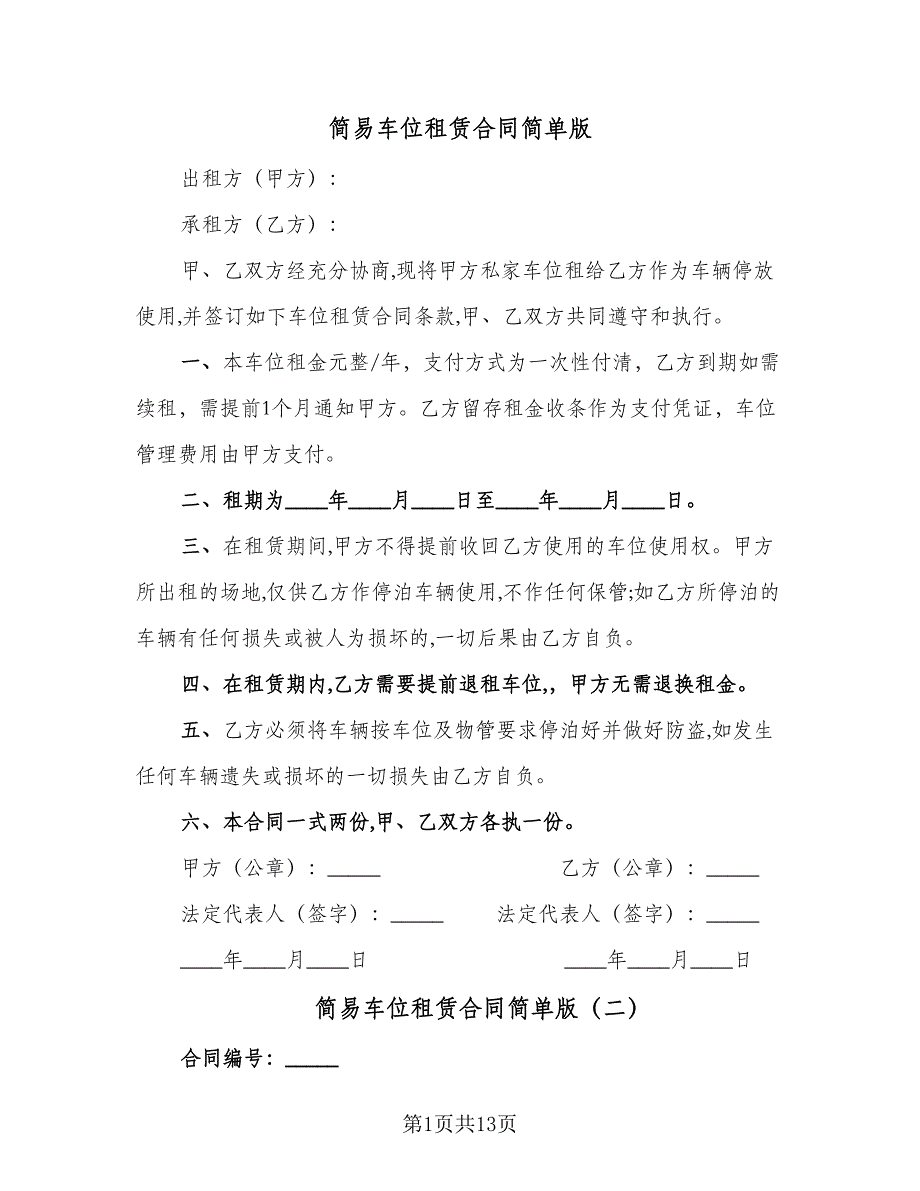 简易车位租赁合同简单版
出租方（甲方）:
承租方（乙方）:
甲、乙双方经充分协商,现将甲方私家车位租给乙方作为车辆停放
使用,并签订如下车位租赁合同条款,甲、乙双方共同遵守和执行。
一、本车位租金元整/年，支付方式为一次性付清，乙方到期如需
续租，需提前1个月通知甲方。乙方留存租金收条作为支付凭证，车位
管理费用由甲方支付。
二、租期为____年____月____日至____年____月____日。
三、在租赁期间,甲方不得提前收回乙方使用的车位使用权。甲方
所出租的场地,仅供乙方作停泊车辆使用,不作任何保管;如乙方所停泊的
车辆有任何损失或被人为损坏的,一切后果由乙方自负。
四、在租赁期内,乙方需要提前退租车位,，甲方无需退换租金。
五、乙方必须将车辆按车位及物管要求停泊好并做好防盗,如发生
任何车辆遗失或损坏的一切损失由乙方自负。
六、本合同一式两份,甲、乙双方各执一份。
甲方（公章）：_____ 乙方（公章）：_____
法定代表人（签字）：_____ 法定代表人（签字）：_____
____年____月____日 ____年____月____日
简易车位租赁合同简单版（二）
合同编号：_____
第1页共13页